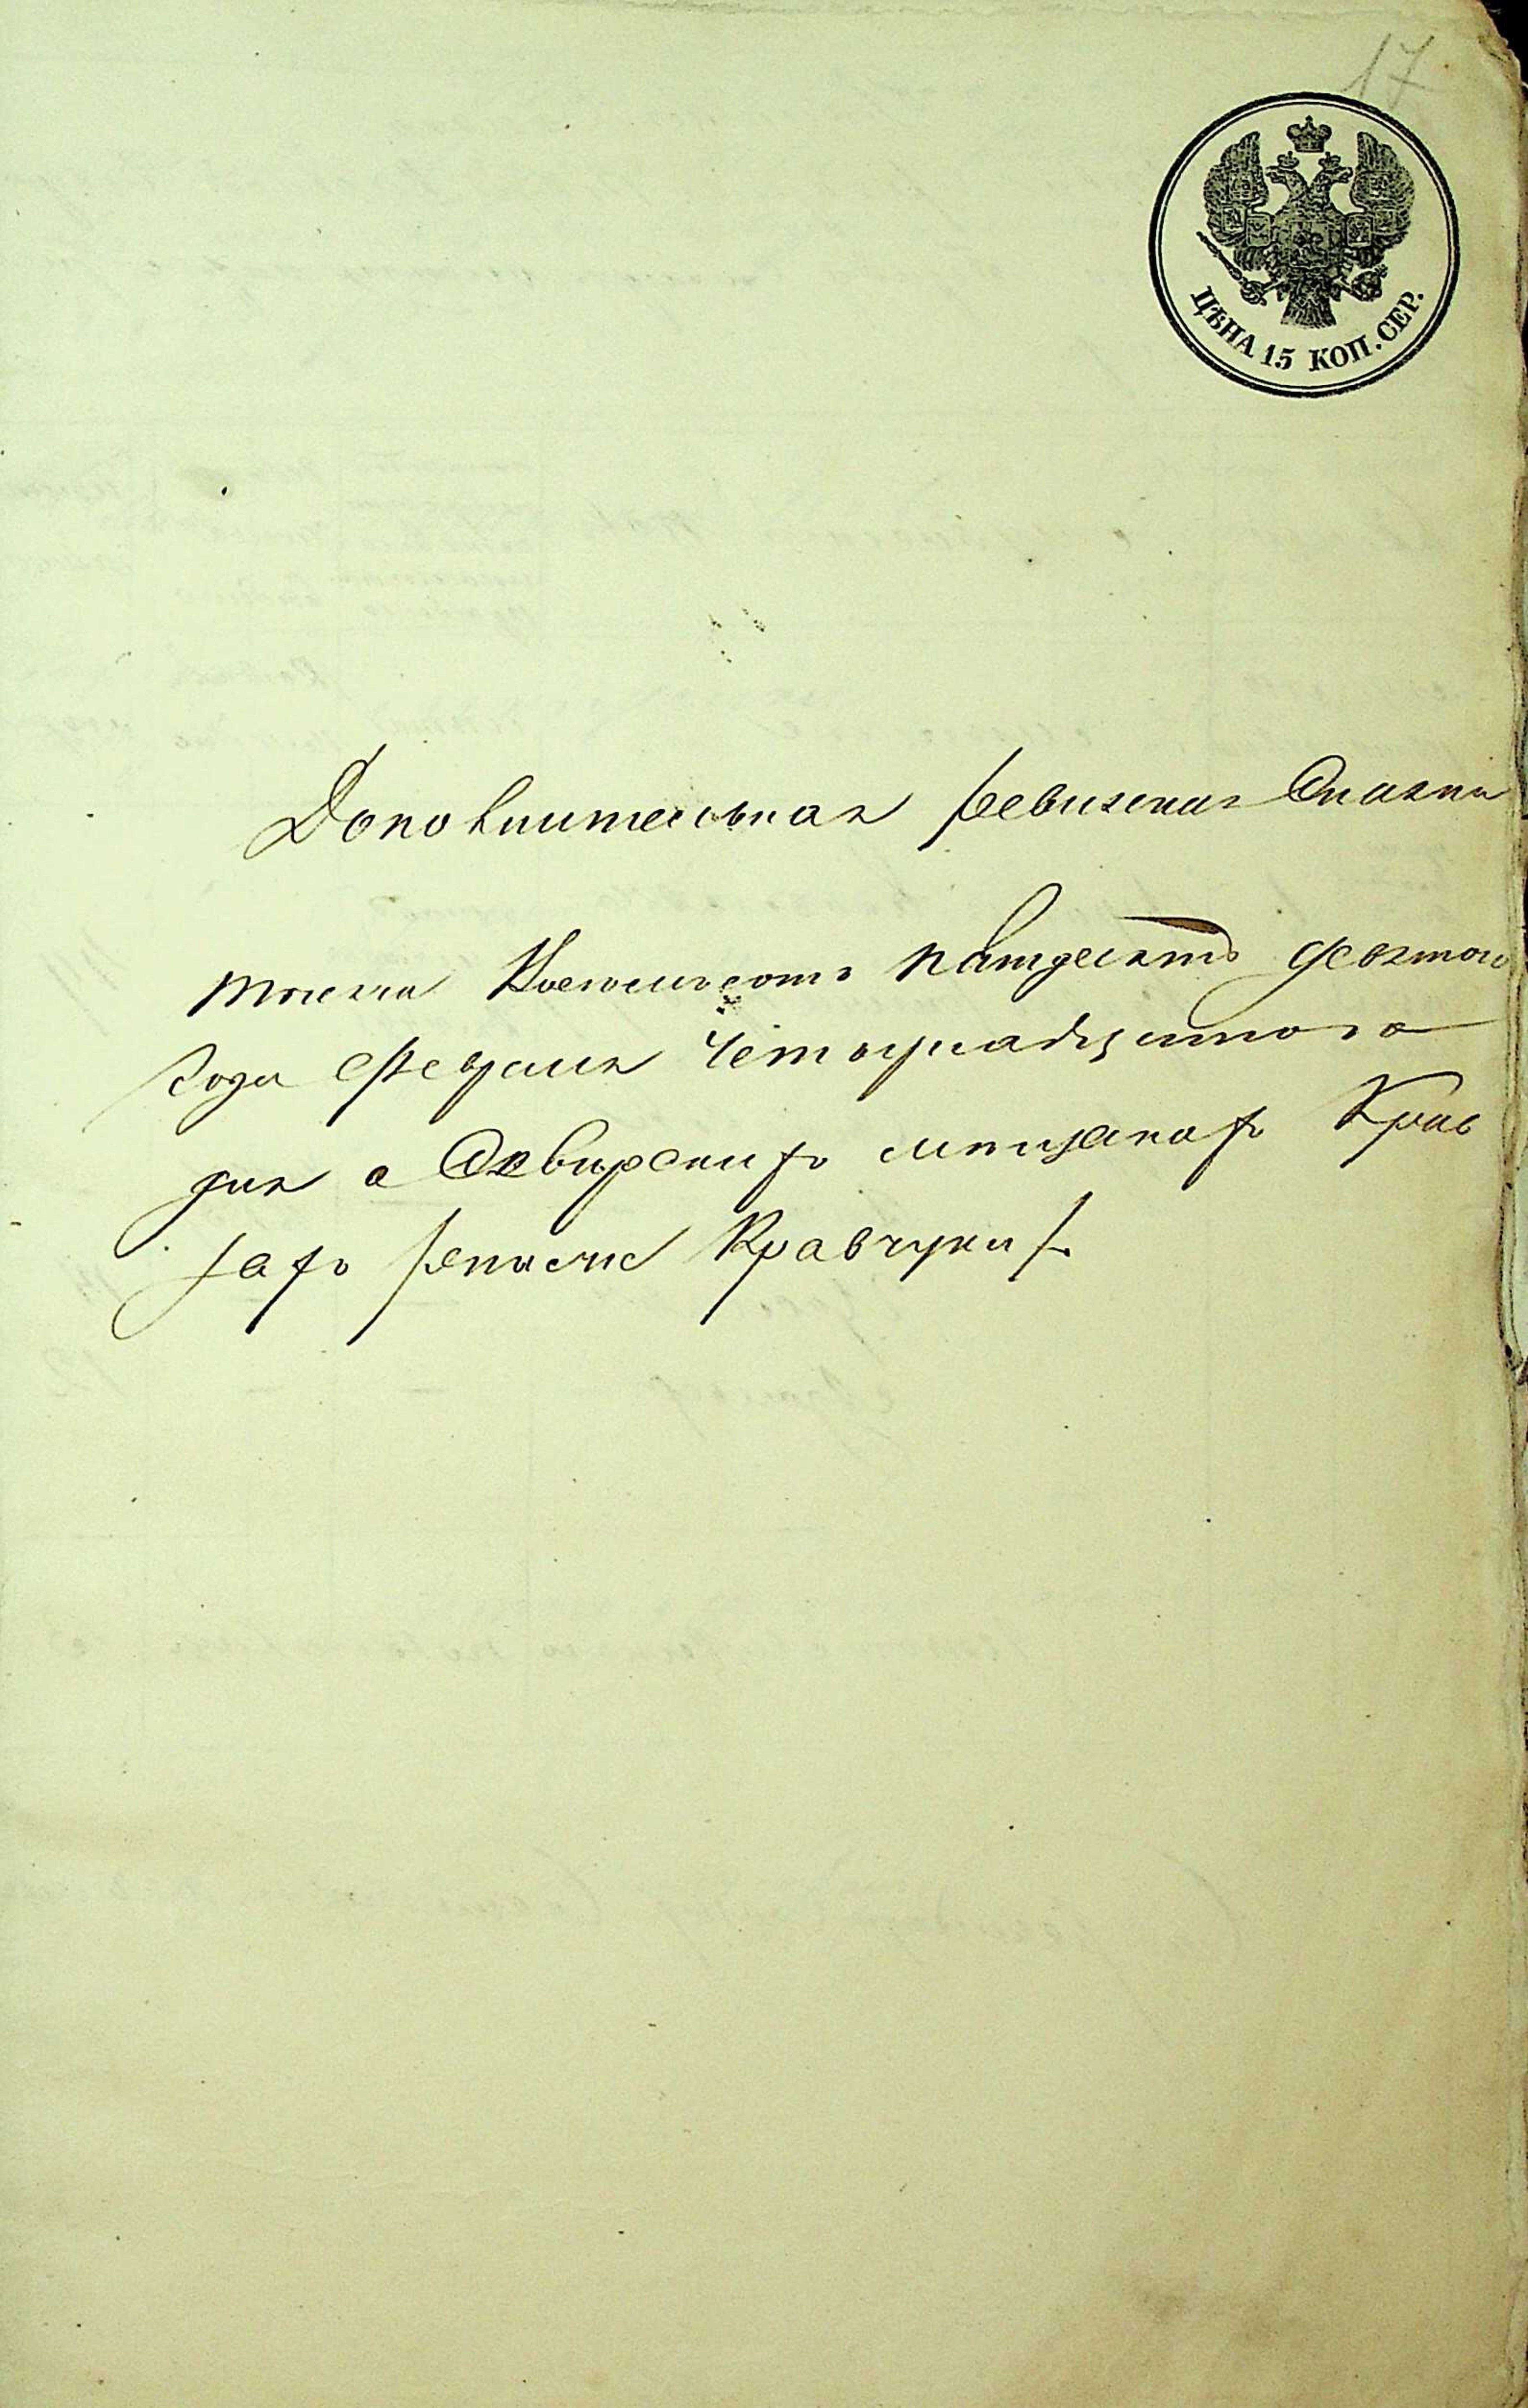 17
ЦѢНА 15 КОП. СЕР.
Дополнительная ревизская Сказка
тысяча Восемьсотъ пятдесятъ девятого
Года Февраля Четырнадцатого
дня о Сквирскихъ мещанахъ
Кравчукахъ